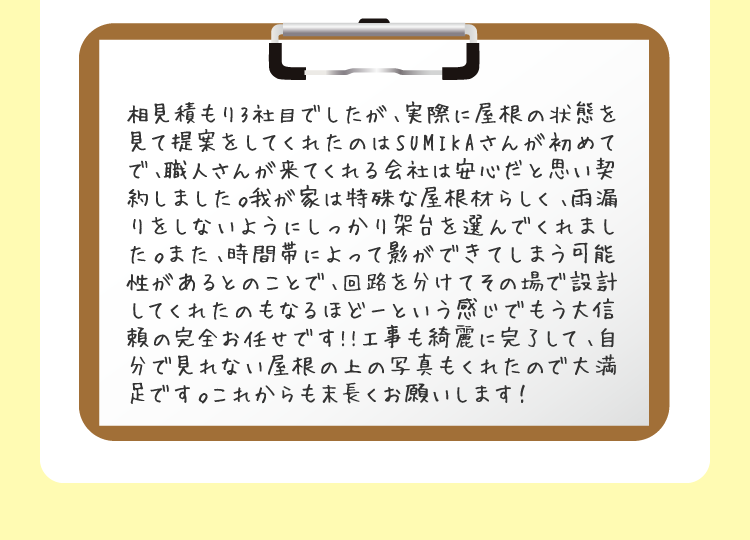 相見積もり3社目でしたが、実際に屋根の状態を
見て提案をしてくれたのはSUMIKAさんが初めて
で、職人さんが来てくれる会社は安心だと思い契
約しました。我が家は特殊な屋根材らしく、雨漏
りをしないようにしっかり架台を選んでくれまし
た。また、時間帯によって影ができてしまう可能
性があるとのことで、回路を分けてその場で設計
してくれたのもなるほどーという感じでもう大信
頼の完全お任せです!!工事も綺麗に完了して、自
分で見れない屋根の上の写真もくれたので大満
足です。これからも末長くお願いします!